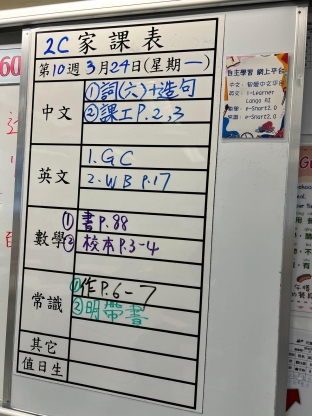 2C 家課表
第10週 3月24日(星期一)
中文
①詞(六)+造句
②課工P.2,3
英文
1. GC
2. WB P.17
數學
①書P.88
②校本P.3-4
常識
①作P.6-7
②明帶書
其它
值日生
自主學習 網上平台
中文:智愛中文平台
英文:i-Learner
Lango AI
數學:e-Smart2.0
常識:e-Smart2.0
60